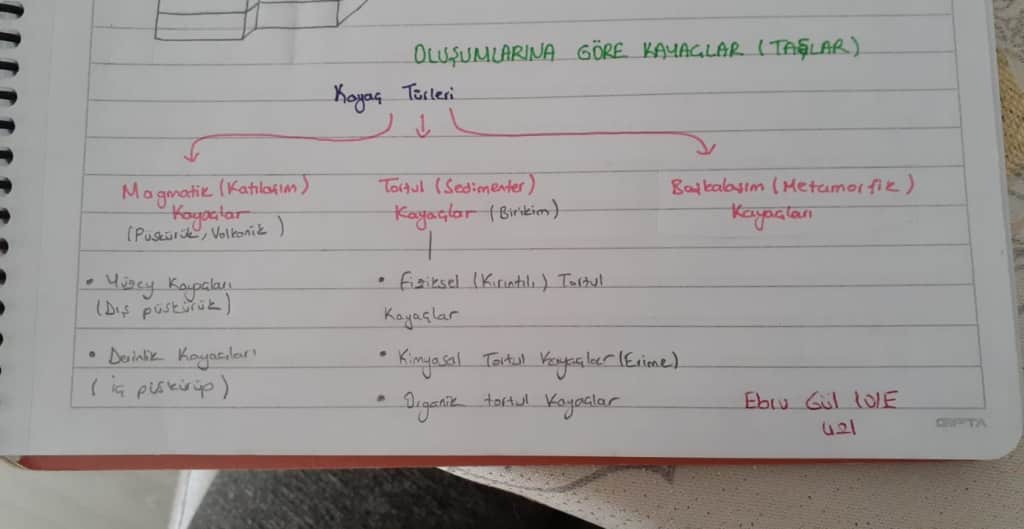 OLUŞUMLARINA GÖRE KAYAÇLAR (TAŞLAR)
Kayaç Türleri
Magmatik (Katılaşım)
Kayaçlar
(Püskürük, Volkanik)
• Yüzey Kayaçları
(Dış püskürük)
• Derinlik Kayaçları
( iç püskürüp)
Tortul (Sedimenter)
Kayaçlar (Birikim)
• Fiziksel (Kırıntılı) Tortul
Kayaçlar
• Kimyasal Tortul Kayaçlar (Erime)
• Organik tortul Kayaçlar
Başkalaşım (Metamorfik)
Kayaçları
Ebru Gül 10/E
421
GIPTA